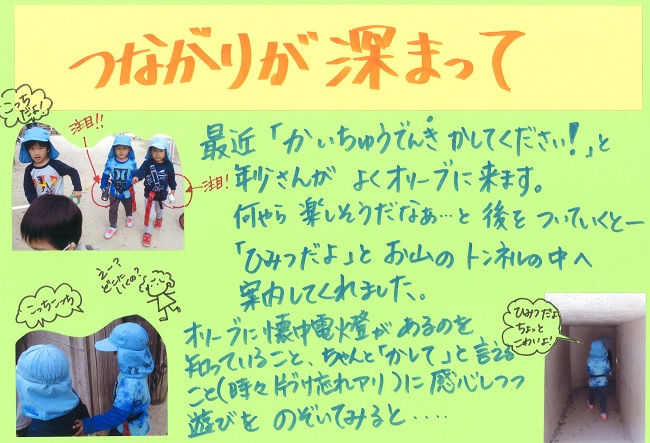 つながりが深まって
こっちだよ!
注目!!
注目!
最近「かいちゅうでんき かしてください!」と
年少さんが よくオリーブに来ます。
何やら 楽しそうだなぁ…と 後を ついていくとー
「ひみつだよ」と お山の トンネルの中へ
案内してくれました。
えー?
どこに
いくの?
こっちこっち
ひみつだよ
ちょっと
こわいよ!
オリーブに懐中電燈が あるのを
知っていること、ちゃんと「かして」と 言える
こと(時々片づけ忘れアリ)に 感心しつつ
遊びを のぞいてみると・・・・